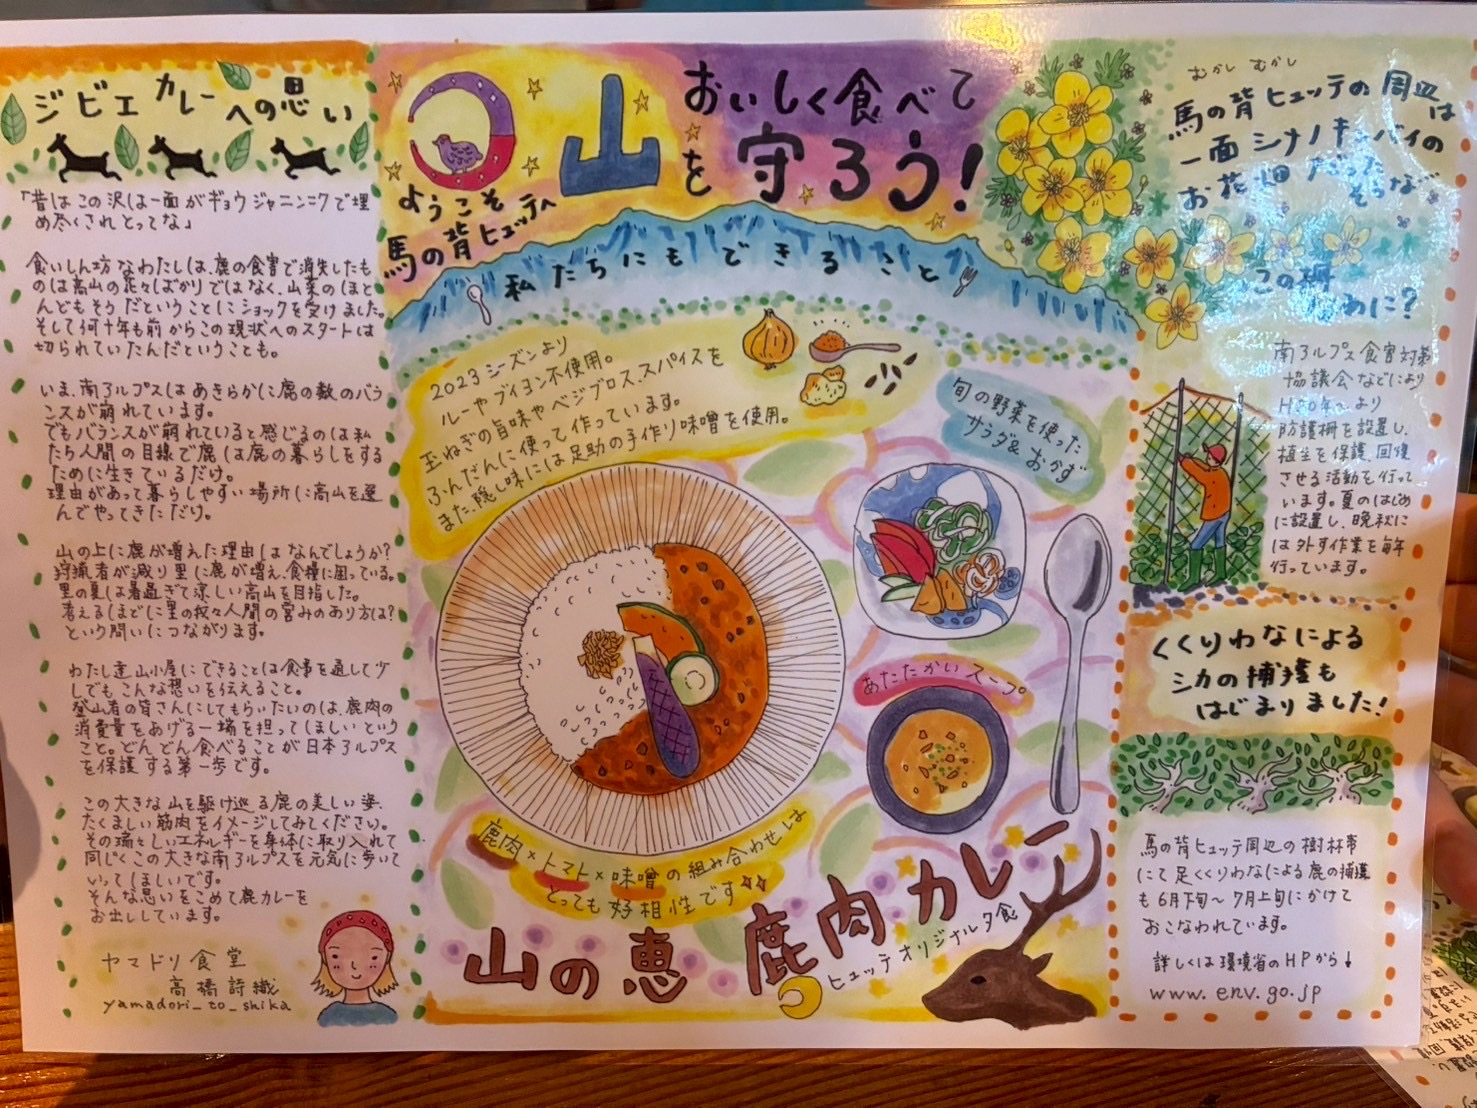 ジビエカレーへの思い
「昔はこの沢は一面がギョウジャニンニクで埋
め尽くされとってな」
食いしん坊なわたしは、鹿の食害で消失したも
のは高山の花々ばかりではなく、山菜のほと
んどもそうだということにショックを受けました。
そして何十年も前からこの現状へのスタートは
切られていたんだということも。
いま、南アルプスはあきらかに鹿の数のバラ
ンスが崩れています。
でもバランスが崩れていると感じるのは私
たち人間の目線で鹿は鹿の暮らしをする
ために生きているだけ。
理由があって暮らしやすい場所に高山を選
んでやってきただけ。
山の上に鹿が増えた理由はなんでしょうか?
狩猟者が減り里に鹿が増え、食糧に困っている。
里の夏は暑過ぎて涼しい高山を目指した。
考えるほどに里の我々人間の営みのあり方は?
という問いにつながります。
わたし達山小屋にできることは食事を通して少
しでもこんな想いを伝えること。
登山者の皆さんにしてもらいたいのは、鹿肉の
消費量をあげる一端を担ってほしいという
こと。どんどん食べることが日本アルプス
を保護する第一歩です。
この大きな山を駆け巡る鹿の美しい姿、
たくましい筋肉をイメージしてみてください。
その瑞々しいエネルギーを身体に取り入れて
同じくこの大きな南アルプスを元気に歩いて
いってほしいです。
そんな思いをこめて鹿カレーを
お出ししています。
ヤマドリ食堂
高橋詩織
yamadori_to_shika
ようこそ
馬の背ヒュッテへ
おいしく食べて
山を守ろう!
私たちにもできること
2023シーズンより
ルーやブイヨン不使用。
玉ねぎの旨味やベジブロス、スパイスを
ふんだんに使って作っています。
また、隠し味には足助の手作り味噌を使用。
旬の野菜を使った
サラダ&おかず
あたたかいスープ
鹿肉×トマト×味噌の組み合わせは
とっても好相性です
山の恵 鹿肉カレー
ヒュッテオリジナル夕食
むかし むかし
馬の背ヒュッテの周辺は
一面シナノキンバイの
お花畑だったそうな
この柵
めに?
南アルプス食害対策
協議会などにより
H20年より
防護柵を設置し、
植生を保護、回復
させる活動を行って
います。夏のはじめ
に設置し、晩秋に
は外す作業を毎年
行っています。
くくりわなによる
シカの捕獲も
はじまりました!
馬の背ヒュッテ周辺の樹林帯
にて足くくりわなによる鹿の捕獲
も6月下旬〜7月上旬にかけて
おこなわれています。
詳しくは環境省のHPから↓
www.env.go.jp